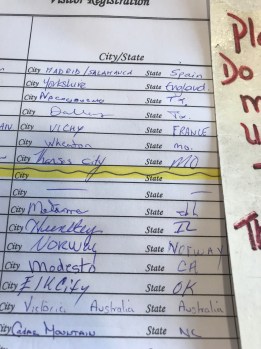 Visitor Registration
City/State
City MADRID/SALAMANCA State Spain
City Yorkshire State England
City Nacogdoches State Tx.
City Dallas State Tx.
City VICHY State FRANCE
City Wheaton State mo.
City Kansas City State MO
City State
City State
City State IL
City Huntley State IL
City NORWAY State NORWAY
City Modesto State CA
City Elk City State OK
City Victoria Australia State Australia
City Mountain State NC
Do